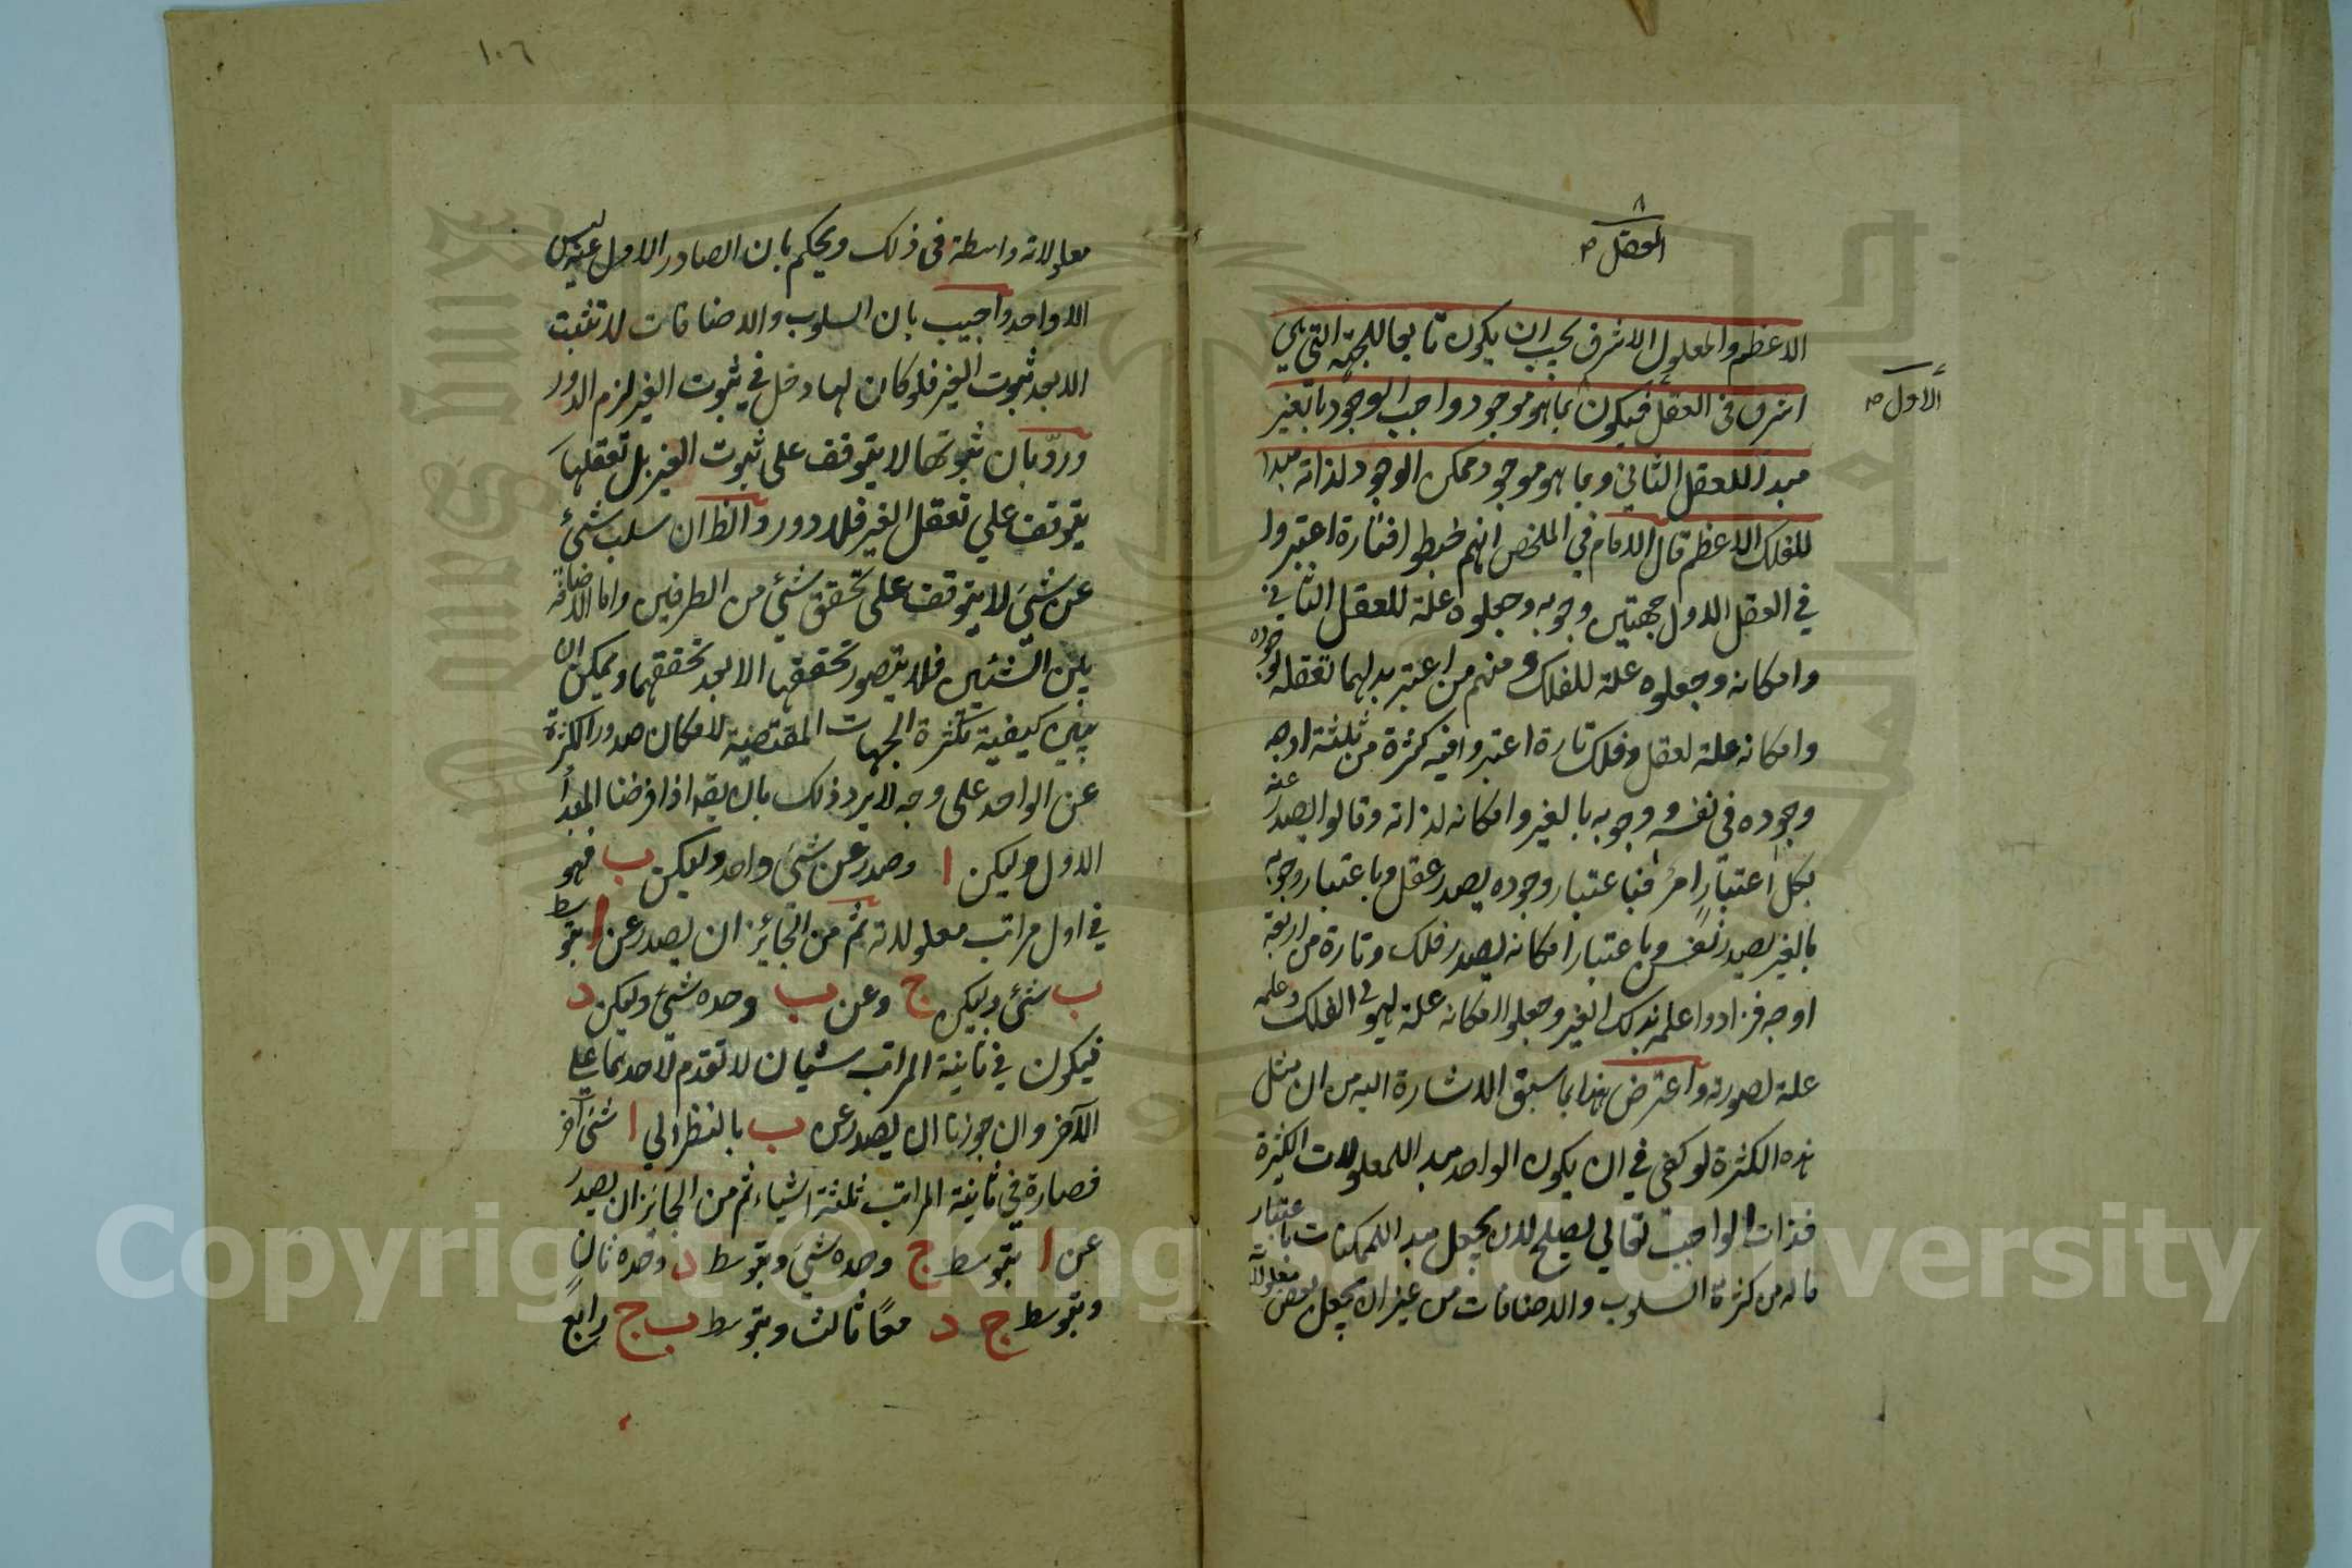 ١٠٦
٨
العقل صح
الاعظم والمعلول الاشرف يجب ان يكون تابعا للجهة التي هي
الاول صح
اشرف في العقل فيكون بما هو موجود واجب الوجود بالغير
مبدأ للعقل الثاني وبما هو موجود ممكن الوجود لذاته مبدا
للفلك الاعظم قال الامام في الملخص انهم خبطوا فتارة اعتبروا
في العقل الاول جهتين وجوبه وجعلوه علة للعقل الثاني
وامكانه وجعلوه علة للفلك ومنهم من اعتبر بدلهما تعقله لوجوده
وامكانه علة لعقل وفلك تارة اعتبروا فيه كثرة من ثلثة اوجه
وجوده في نفسه ووجوبه بالغير وامكانه لذاته وقالوا يصدر عنه
بكل اعتبار امر فباعتبار وجوده يصدر عقل وباعتبار وجوبه
بالغير يصدر نفس وباعتبار امكانه يصدر فلك وتارة من اربعة
اوجه فزادوا علمه بذلك الغير وجعلوا امكانه علة لهيولى الفلك وعلمه
علة لصورته واعترض هذا بما سبق الاشارة اليه من ان مثل
هذه الكثرة لو كفى في ان يكون الواحد مبدا للمعلولات الكثيرة
فذات الواجب تعالى يصلح لان يجعل مبدا للممكنات باعتبار
ماله من كثرة السلوب والاضافات من غير ان يجعل بعض معلولاته
معلولاته واسطة في ذلك ويحكم بان الصادر الاول عنه ليس
الا واحد واجيب بان السلوب والاضافات لا تثبت
الا بعد ثبوت الغير فلو كان لها دخل في ثبوت الغير لزم الدور
وردّ بان ثبوتها لا يتوقف على ثبوت الغير بل تعقلها
يتوقف علي تعقل الغير فلا دور والظ ان سلب شئ
عن شئ لا يتوقف على تحقق شئ من الطرفين واما الاضافة
بين الشئين فلا يتصور تحققها الا بعد تحققهما ويمكن ان
يبين كيفية تكثرة الجهات المقتضية لامكان صدور الكثرة
عن الواحد على وجه لا يرد ذلك بان يقه اذا فرضنا المبدأ
الاول وليكن ا وصدر عن شئ واحد وليكن ب فهو
في اول مراتب معلولاته ثم من الجائز ان يصدر عن ا بتوسط
ب شئ وليكن ج وعن ب وحده شئ وليكن د
فيكون في ثانية المراتب شيان لا تقدم لاحدهما علي
الآخر وان جوزنا ان يصدر عن ب بالنظر الي ا شئ آخر
فصار في ثانية المراتب ثلثة اشياء ثم من الجائز ان يصدر
عن ا بتوسط ج وحده شئ وبتوسط د وحده ثان
وبتوسط ج د معًا ثالث وبتوسط ب ج رابع